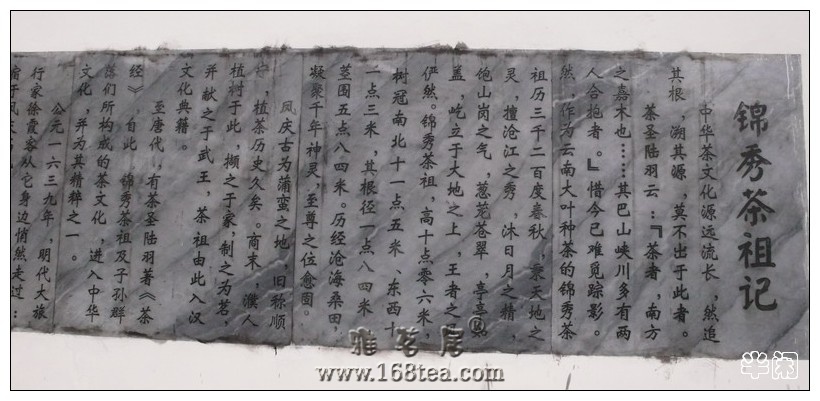 锦秀茶祖记
中华茶文化源远流长，然追
其根，溯其源，莫不出于此者。
茶圣陆羽云：『茶者，南方
之嘉木也……其巴山峡川多有两
人合抱者。』惜今已难觅踪影。
然，作为云南大叶种茶的锦秀茶
祖历三千二百度春秋，禀天地之
灵，擅沧江之秀，沐日月之精，
饱山岗之气，葱茏苍翠，亭亭如
盖，屹立于大地之上，王者之
俨然。锦秀茶祖，高十点零六米，
树冠南北十一点五米、东西十
一点三米，其根径一点八四米，
茎围五点八四米。历经沧海桑田，
凝聚千年神灵，至尊之位愈固。
凤庆古为蒲蛮之地，旧称顺
宁，植茶历史久矣。商末，濮人
植树于此，撷之于家，制之为茗，
并献之于武王，茶祖由此入汉
文化典籍。
至唐代，有茶圣陆羽著《茶
经》，自此，锦秀茶祖及子孙群
落们所构成的茶文化，进入中华
文化，并为其精粹之一。
公元一六三九年，明代大旅
行家徐霞客从它身边悄然走过：
雅茗居®
www.168tea.com
半闲